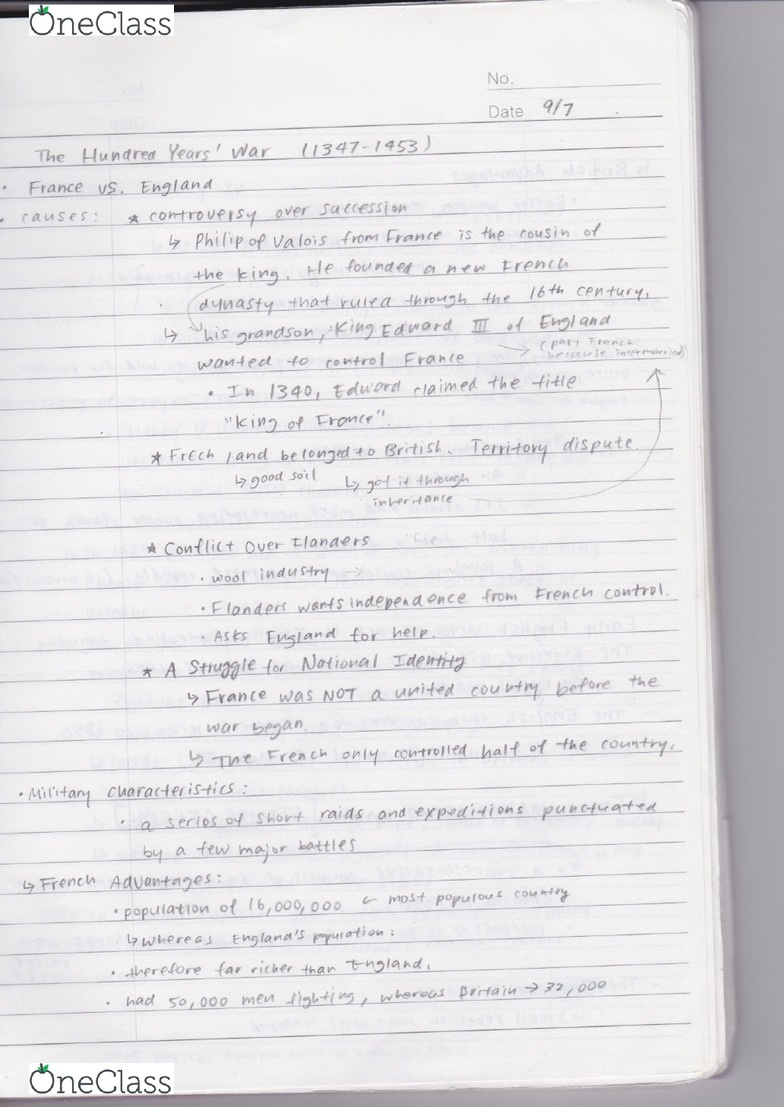 OneClass
No.
Date 9/7
The Hundred Years' War (1347-1453)
• France vs. England
• causes: * controversy over succession
↳ Philip of Valois from France is the cousin of
the king. He founded a new French
dynasty that ruled through the 16th century.
↳ his grandson, King Edward III of England
(part French
because intermarried)
wanted to control France →
• In 1340, Edward claimed the title
"King of France".
* Frech land belonged to British. Territory dispute.
↳ good soil ↳ got it through
inheritance
* Conflict Over Flanders
• wool industry →
• Flanders wants independence from French control.
• Asks England for help.
* A Struggle for National Identity
↳ France was NOT a united country before the
war began.
↳ The French only controlled half of the country.
• Military characteristics:
• a series of short raids and expeditions punctuated
by a few major battles
↳ French Advantages:
• population of 16,000,000 ← most populous country
↳ whereas England's population:
• therefore far richer than England.
• had 50,000 men fighting, whereas Britain → 32,000
OneClass